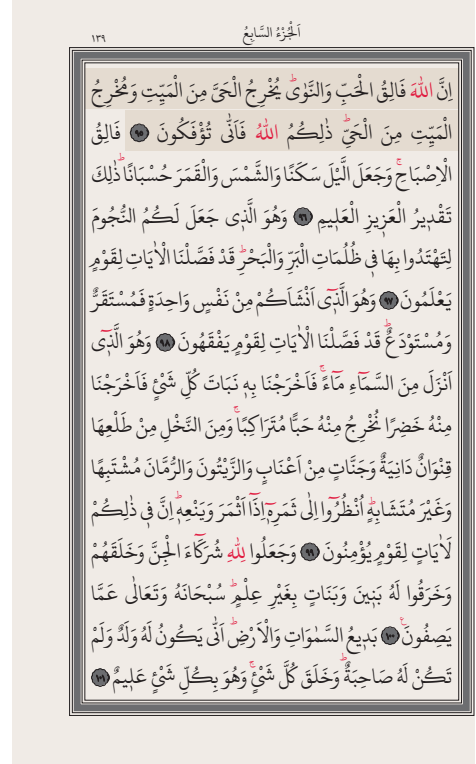 اَلْجُزْءُ السَّابِعُ
١٣٩
اِنَّ اللّٰهَ فَالِقُ الْحَبِّ وَالنَّوٰىۜ يُخْرِجُ الْحَيَّ مِنَ الْمَيِّتِ وَمُخْرِجُ
الْمَيِّتِ مِنَ الْحَيِّۜ ذٰلِكُمُ اللّٰهُ فَاَنّٰى تُؤْفَكُونَ ٩٥ فَالِقُ
الْاِصْبَاحِۚ وَجَعَلَ الَّيْلَ سَكَنًا وَالشَّمْسَ وَالْقَمَرَ حُسْبَانًاۜ ذٰلِكَ
تَقْدٖيرُ الْعَزٖيزِ الْعَلٖيمِ ٩٦ وَهُوَ الَّذٖى جَعَلَ لَكُمُ النُّجُومَ
لِتَهْتَدُوا بِهَا فٖى ظُلُمَاتِ الْبَرِّ وَالْبَحْرِۜ قَدْ فَصَّلْنَا الْاٰيَاتِ لِقَوْمٍ
يَعْلَمُونَ ٩٧ وَهُوَ الَّذٖٓى اَنْشَاَكُمْ مِنْ نَفْسٍ وَاحِدَةٍ فَمُسْتَقَرٌّ
وَمُسْتَوْدَعٌۜ قَدْ فَصَّلْنَا الْاٰيَاتِ لِقَوْمٍ يَفْقَهُونَ ٩٨ وَهُوَ الَّذٖٓى
اَنْزَلَ مِنَ السَّمَٓاءِ مَٓاءًۚ فَاَخْرَجْنَا بِهٖ نَبَاتَ كُلِّ شَىْءٍ فَاَخْرَجْنَا
مِنْهُ خَضِرًا نُخْرِجُ مِنْهُ حَبًّا مُتَرَاكِبًاۚ وَمِنَ النَّخْلِ مِنْ طَلْعِهَا
قِنْوَانٌ دَانِيَةٌ وَجَنَّاتٍ مِنْ اَعْنَابٍ وَالزَّيْتُونَ وَالرُّمَّانَ مُشْتَبِهًا
وَغَيْرَ مُتَشَابِهٍۜ اُنْظُرُٓوا اِلٰى ثَمَرِهٖٓ اِذَٓا اَثْمَرَ وَيَنْعِهٖۜ اِنَّ فٖى ذٰلِكُمْ
لَاٰيَاتٍ لِقَوْمٍ يُؤْمِنُونَ ٩٩ وَجَعَلُوا لِلّٰهِ شُرَكَٓاءَ الْجِنَّ وَخَلَقَهُمْ
وَخَرَقُوا لَهُ بَنٖينَ وَبَنَاتٍ بِغَيْرِ عِلْمٍۜ سُبْحَانَهُ وَتَعَالٰى عَمَّا
يَصِفُونَۚ ١٠٠ بَدٖيعُ السَّمٰوَاتِ وَالْاَرْضِۜ اَنّٰى يَكُونُ لَهُ وَلَدٌ وَلَمْ
تَكُنْ لَهُ صَاحِبَةٌۜ وَخَلَقَ كُلَّ شَىْءٍۚ وَهُوَ بِكُلِّ شَىْءٍ عَلٖيمٌ ١٠١